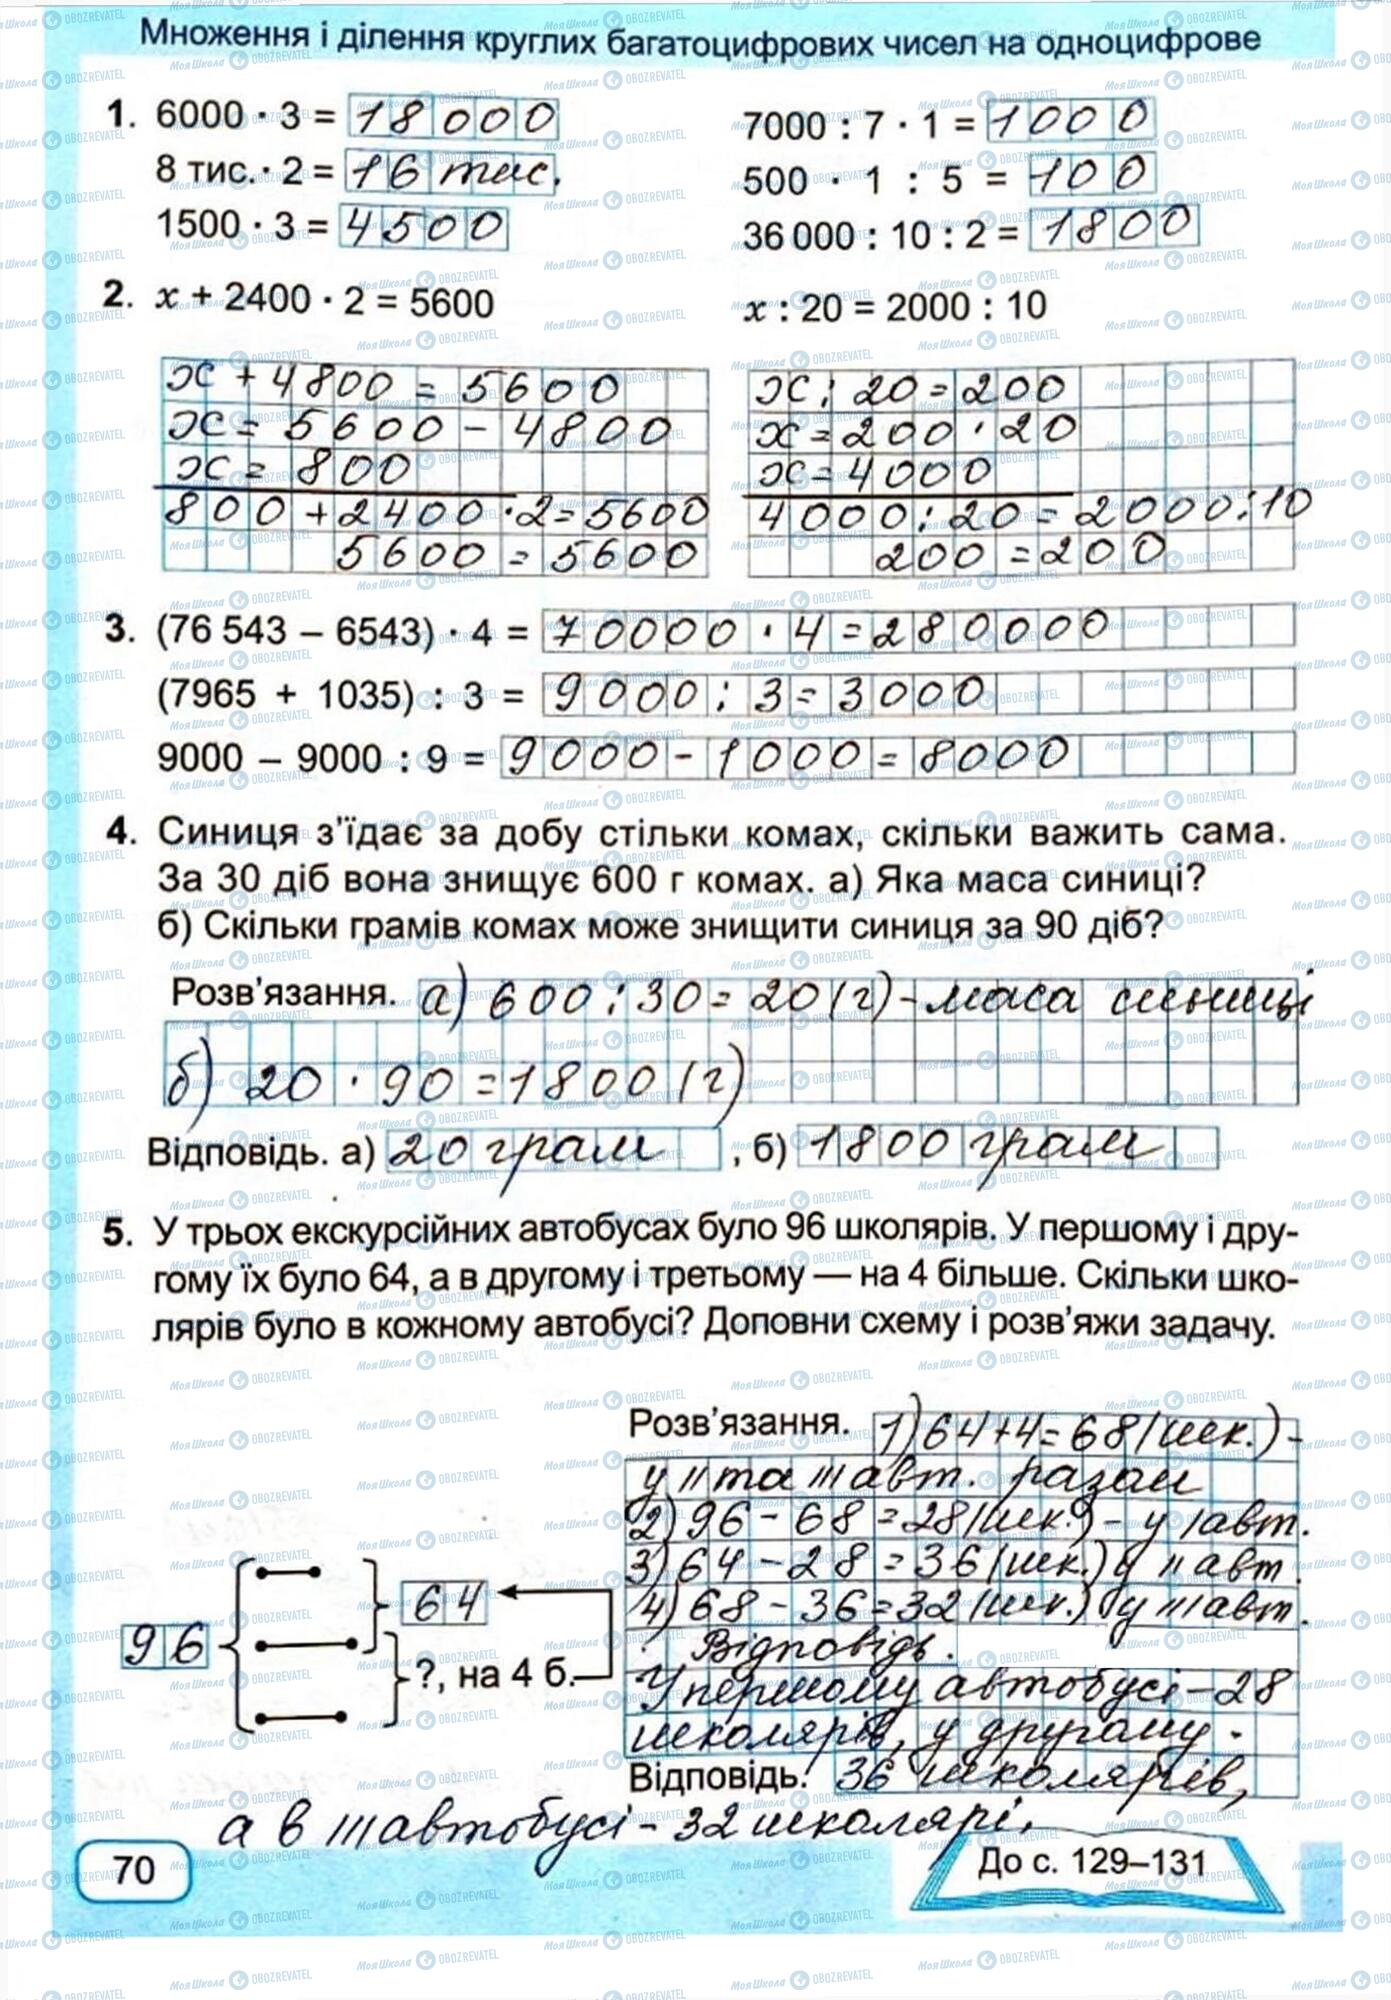 Множення і ділення круглих багатоцифрових чисел на одноцифрове
1. 6000 · 3 = 18000
8 тис. · 2 = 16 тис.
1500 · 3 = 4500
7000 : 7 · 1 = 1000
500 · 1 : 5 = 100
36 000 : 10 : 2 = 1800
2. x + 2400 · 2 = 5600
x + 4800 = 5600
x = 5600 - 4800
x = 800
800 + 2400 · 2 = 5600
5600 = 5600
x : 20 = 2000 : 10
x : 20 = 200
x = 200 · 20
x = 4000
4000 : 20 = 2000 : 10
200 = 200
3. (76 543 – 6543) · 4 = 70000 · 4 = 280000
(7965 + 1035) : 3 = 9000 : 3 = 3000
9000 – 9000 : 9 = 9000 - 1000 = 8000
4. Синиця з’їдає за добу стільки комах, скільки важить сама.
За 30 діб вона знищує 600 г комах. а) Яка маса синиці?
б) Скільки грамів комах може знищити синиця за 90 діб?
Розв’язання. а) 600 : 30 = 20 (г) - маса синиці
б) 20 · 90 = 1800 (г)
Відповідь. а) 20 грам , б) 1800 грам
5. У трьох екскурсійних автобусах було 96 школярів. У першому і дру-
гому їх було 64, а в другому і третьому — на 4 більше. Скільки шко-
лярів було в кожному автобусі? Доповни схему і розв’яжи задачу.
96
64
?, на 4 б.
Розв’язання. 1) 64+4=68 (шк.) -
у II та III авт. разом
2) 96 - 68 = 28 (шк.) - у I авт.
3) 64 - 28 = 36 (шк.) у II авт.
4) 68 - 36 = 32 (шк.) у III авт.
Відповідь.
У першому автобусі - 28
школярів, у другому -
Відповідь. 36 школярів,
а в III автобусі - 32 школярі.
70
До с. 129–131
МояШкола OBOZREVATEL